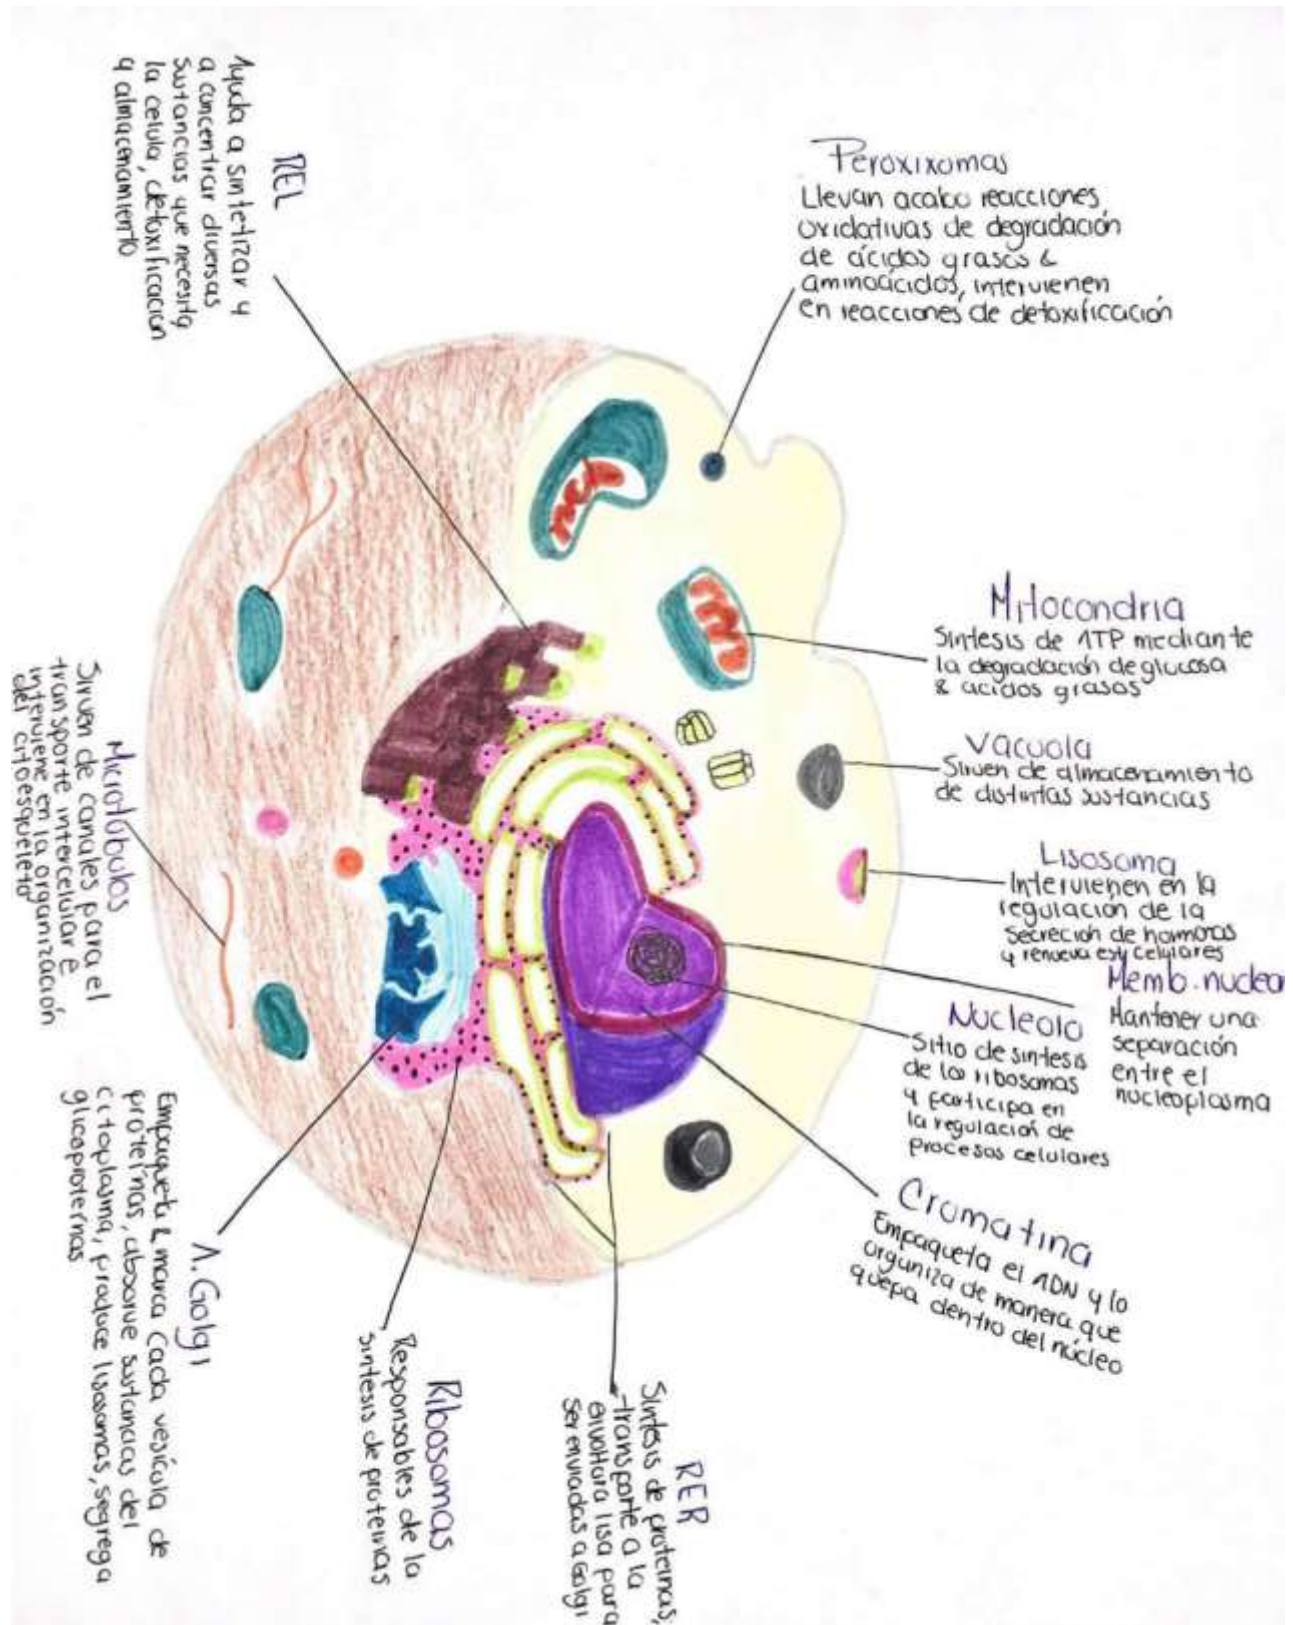 REL
Ayuda a sintetizar y
a concentrar diversas
sustancias que necesita
la celula, detoxificación
y almacenamiento
Peroxixomas
Llevan acabo reacciones
oxidativas de degradación
de ácidos grasos &
aminoácidos, intervienen
en reacciones de detoxificación
Mitocondria
Síntesis de ATP mediante
la degradación de glucosa
& acidos grasos
Vacuola
Sirven de almacenamiento
de distintas sustancias
Lisosoma
Intervienen en la
regulación de la
secreción de hormonas
y renueva est celulares
Memb. nuclea
Mantener una
separación
entre el
nucleoplasma
Nucleolo
Sitio de sintesis
de los ribosomas
y participa en
la regulación de
procesos celulares
Cromatina
Empaqueta el ADN y lo
organiza de manera que
quepa dentro del núcleo
RER
Síntesis de proteinas,
transporte a la
envoltura lisa para
ser enviadas a Golgi
Ribosomas
Responsables de la
sintesis de proteinas
A. Golgi
Empaqueta & marca cada vesícula de
proteínas, absorve sustancias del
citoplasma, produce lisosomas, segrega
glicoproteínas
Microtúbulos
Sirven de canales para el
transporte intercelular e
interviene en la organización
del citoesqueleto